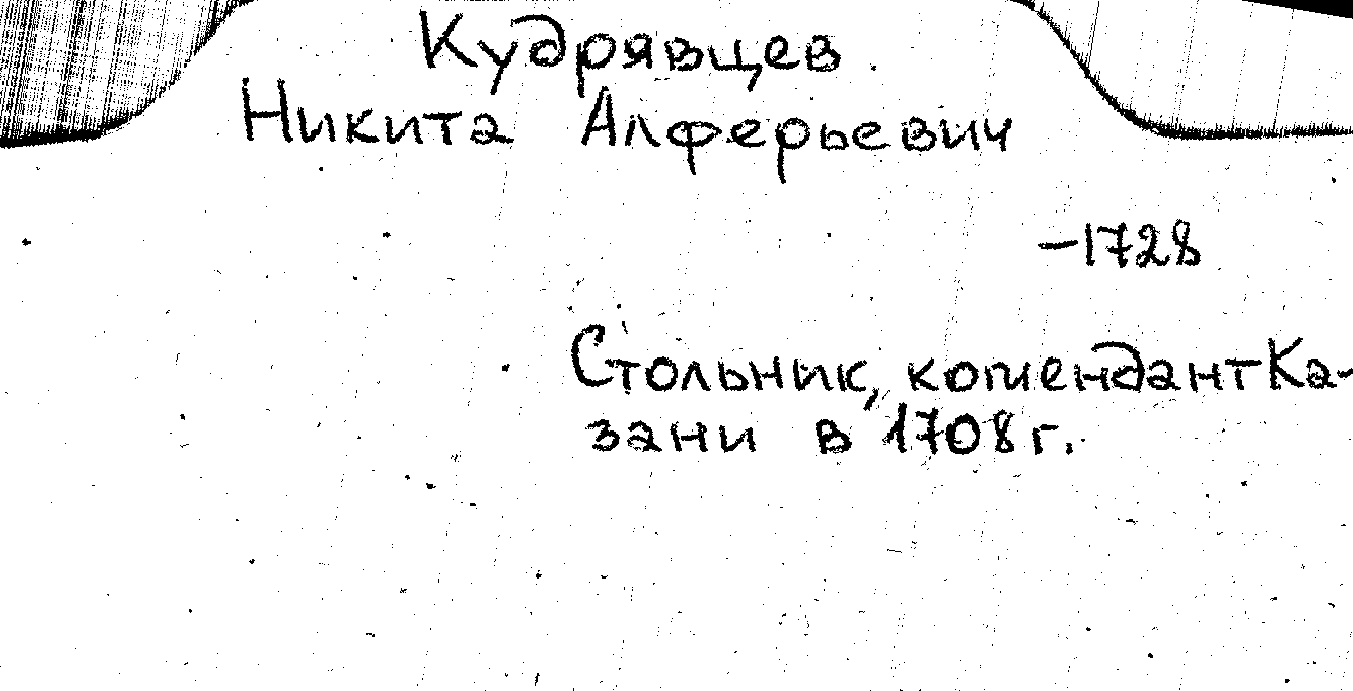 Кудрявцев.
Никита Алферьевич
-1728
Стольник, комендант Ка-
зани в 1708 г.